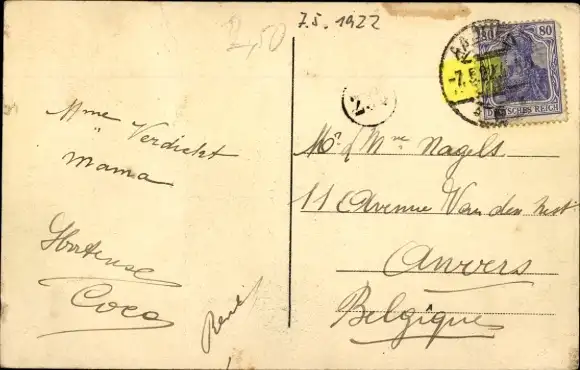 2,50
7.5. 1922
80
DEUTSCHES REICH
Mme Verdickt
"
Mama
Hortense
Coco
René
Mr & Mme Nagels
11 Avenue Van den Nest
Anvers
Belgique